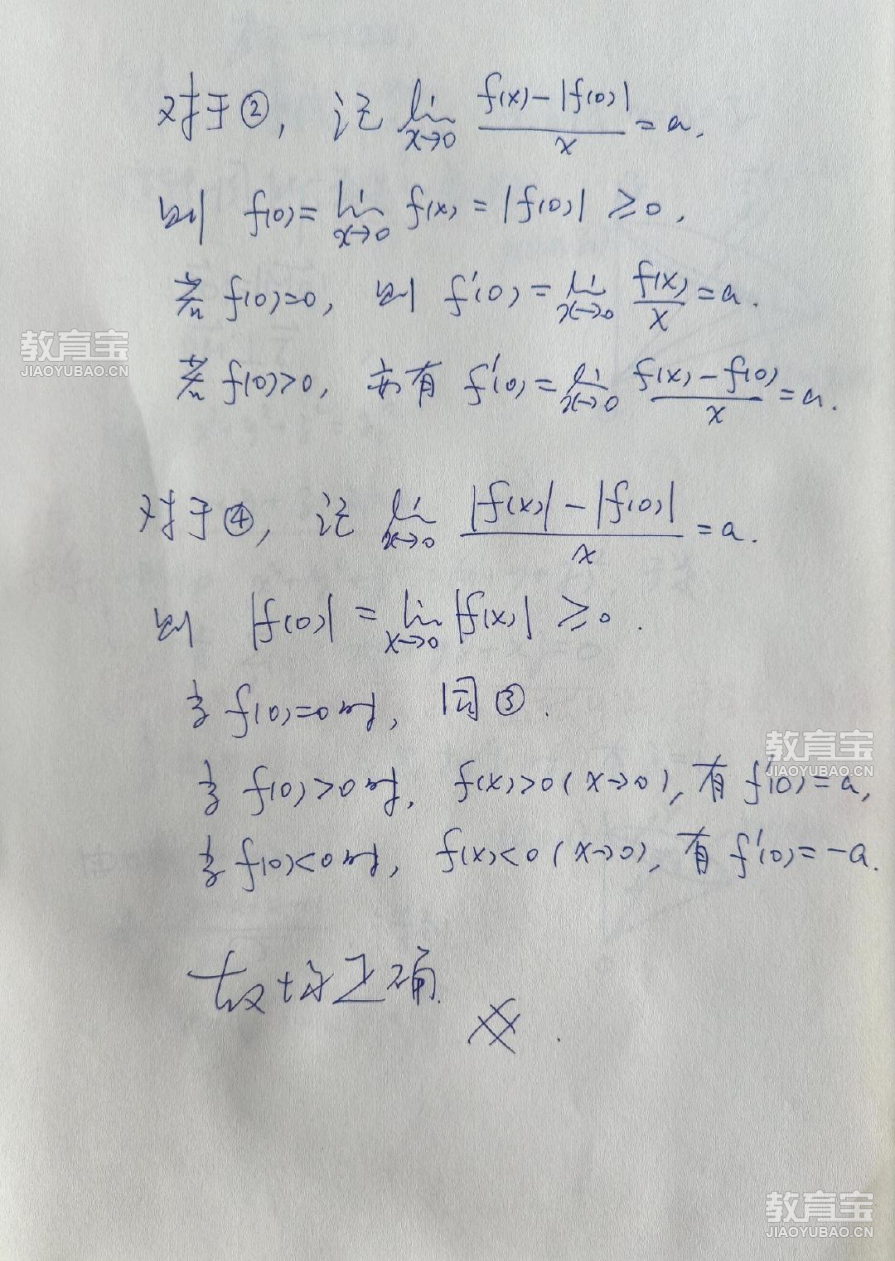 对于②, 记 lim x→0 (f(x)-|f(0)|)/x = a.
则 f(0)= lim x→0 f(x) = |f(0)| ≥0,
若 f(0)=0, 则 f'(0)= lim x→0 f(x)/x = a.
教育宝
JIAOYUBAO.CN
若 f(0)>0, 亦有 f'(0)= lim x→0 (f(x)-f(0))/x = a.
对于④, 记 lim x→0 (|f(x)|-|f(0)|)/x = a.
则 |f(0)| = lim x→0 |f(x)| ≥0.
当 f(0)=0时, 同③.
教育宝
JIAOYUBAO.CN
当 f(0)>0时, f(x)>0(x→0), 有 f'(0)=a,
当 f(0)<0时, f(x)<0(x→0), 有 f'(0)=-a.
故均正确
教育宝
JIAOYUBAO.CN